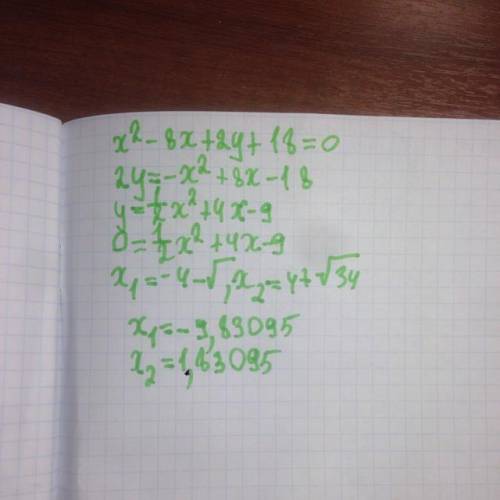 x² - 8x + 2y + 18 = 0
2y = -x² + 8x - 18
y = ½x² + 4x - 9
0 = ½x² + 4x - 9
x₁ = -4 - √, x₂ = 4 + √34
x₁ = -9,83095
x₂ = 1,83095